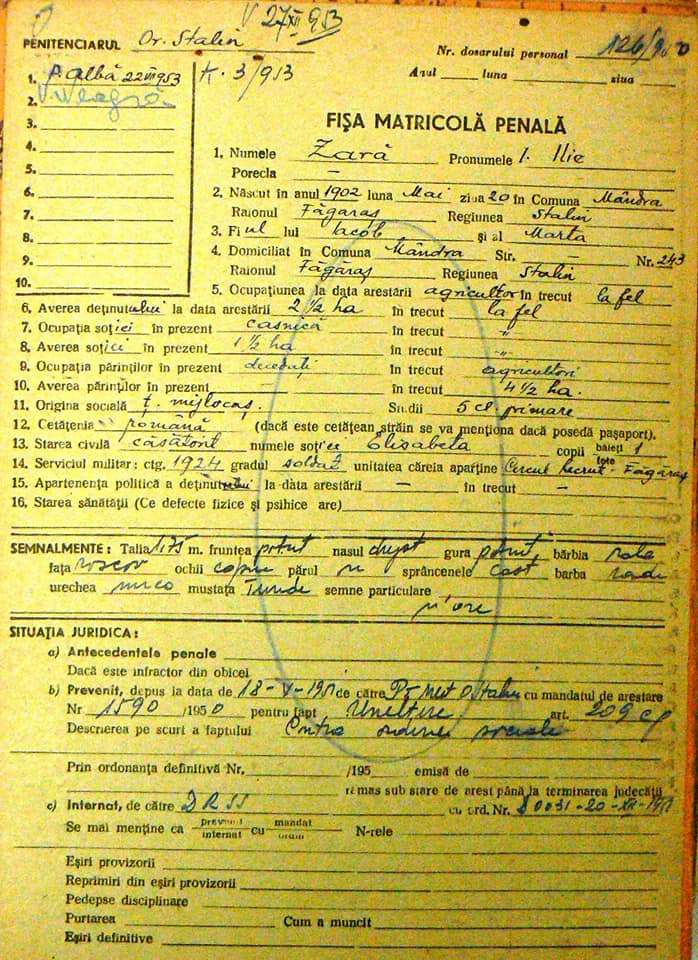 V 27 XII 953
PENITENCIARUL Or. Stalin
Nr. dosarului personal 126/950
Anul luna ziua
1. P. albă 22 VII 953
K. 3/953
2. V. Neagră
3.
4.
5.
6.
7.
8.
9.
10.
FIŞA MATRICOLĂ PENALĂ
1. Numele Zară Pronumele I. Ilie
Porecla —
2. Născut în anul 1902 luna Mai ziua 20 în Comuna Mândra
Raionul Făgăraş Regiunea Stalin
3. Fiul lui Iacob şi al Marta
4. Domiciliat în Comuna Mândra Str. — Nr. 243
Raionul Făgăraş Regiunea Stalin
5. Ocupaţiunea la data arestării agricultor în trecut la fel
6. Averea deţinutului la data arestării 2 1/2 ha în trecut la fel
7. Ocupaţia soţiei în prezent casnică în trecut -"-
8. Averea soţiei în prezent 1 1/2 ha în trecut -"-
9. Ocupaţia părinţilor în prezent decedaţi în trecut agricultori
10. Averea părinţilor în prezent în trecut 4 1/2 ha.
11. Origina socială ţ. mijlocaş. Studii 5 cl. primare
12. Cetăţenia română (dacă este cetăţean străin se va menţiona dacă posedă paşaport).
13. Starea civilă căsătorit numele soţiei Elisabeta copii băieţi 1 fete
14. Serviciul militar: ctg. 1924 gradul soldat unitatea căreia aparţine Cercul Recrut. Făgăraş
15. Apartenenţa politică a deţinutului la data arestării — în trecut —
16. Starea sănătăţii (Ce defecte fizice şi psihice are)
SEMNALMENTE: Talia 1,75 m. fruntea potriv nasul drept gura potriv bărbia rota
faţa roşcov ochii căprui părul sprâncenele cast barba rade
urechea mustaţa Tunde semne particulare
n'are
SITUAŢIA JURIDICA:
a) Antecedentele penale
Dacă este infractor din obicei
b) Prevenit, depus la data de 18-X-195 de către Pr. Stalin cu mandatul de arestare
Nr 1590 /1950 pentru fapt Uneltire art. 209 cp
Descrierea pe scurt a faptului Contra ordinei sociale
Prin ordonanţa definitivă Nr. /195 emisă de
rămas sub stare de arest până la terminarea judecăţii
c) Internat, de către DRSS cu ord. Nr. 80031-20-XII-195
Se mai menţine ca prevenit internat cu mandat ordin N-rele
Eşiri provizorii
Reprimiri din eşiri provizorii
Pedepse disciplinare
Purtarea Cum a muncit
Eşiri definitive